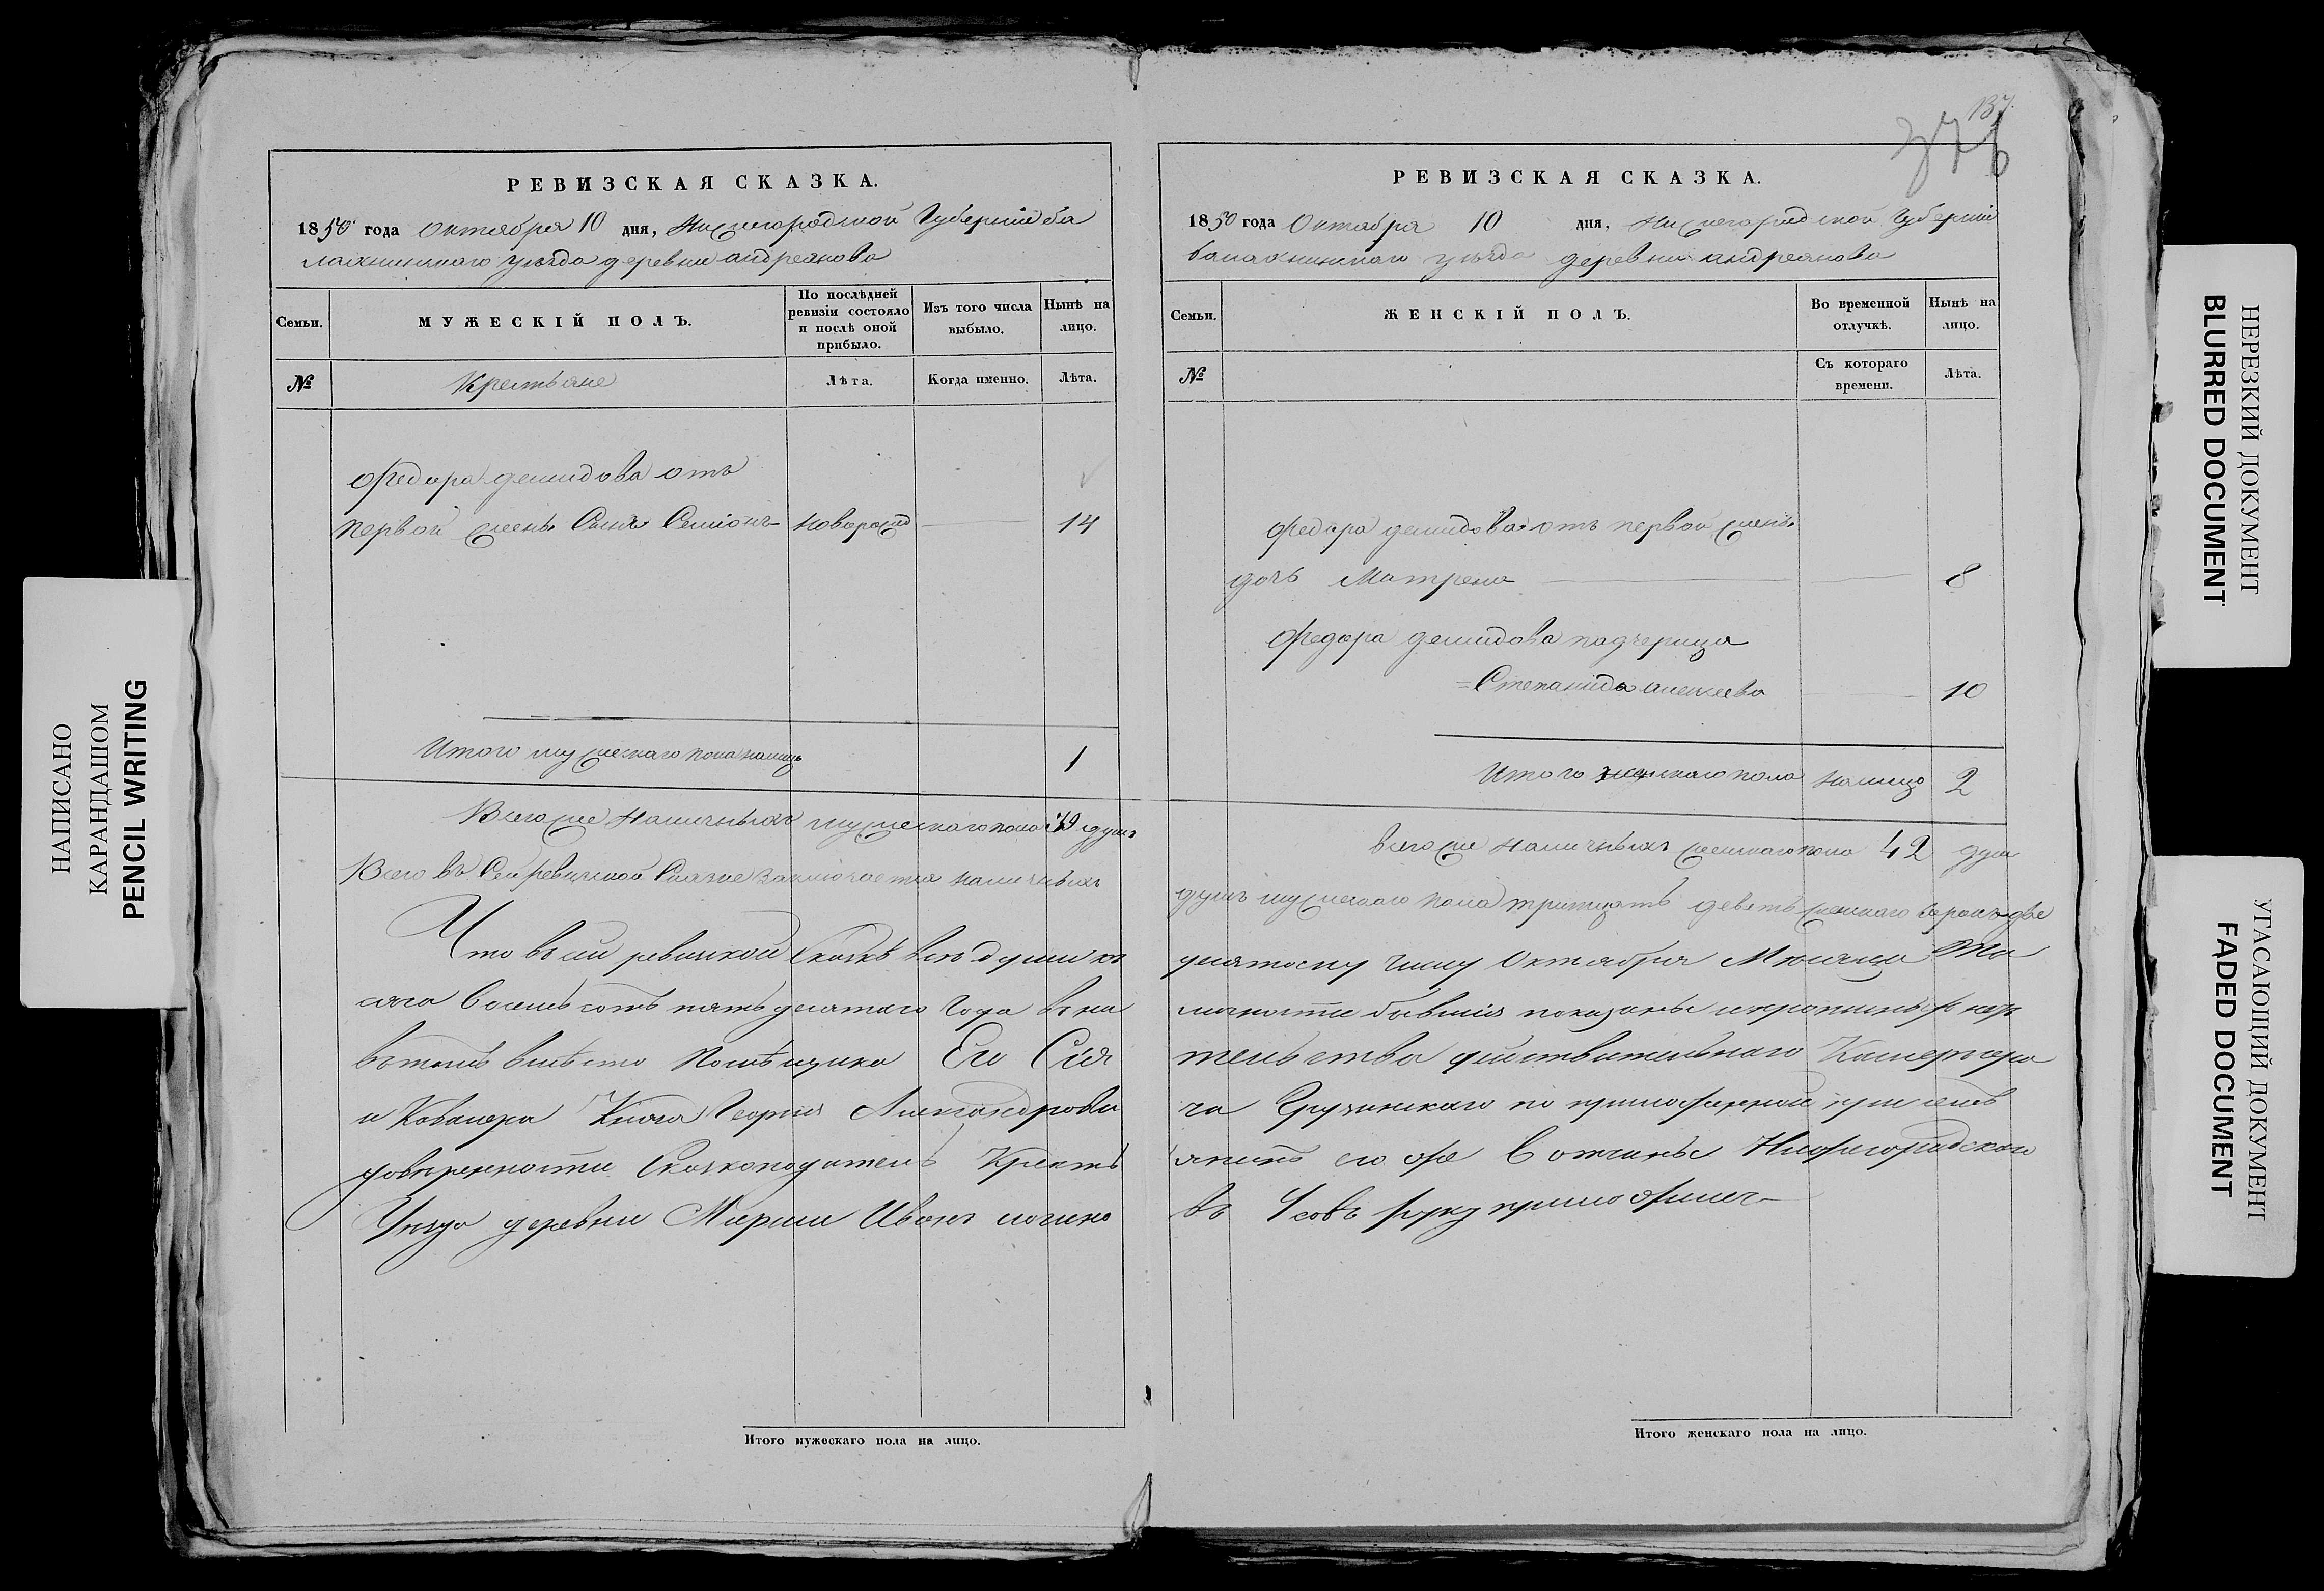 НАПИСАНО
КАРАНДАШОМ
PENCIL WRITING
РЕВИЗСКАЯ СКАЗКА.
1850 года Октября 10 дня, Нижегородской Губерніи ба
лахнинскаго уѣзда деревни андреянова
Семьи.
МУЖЕСКІЙ ПОЛЪ.
По послѣдней
ревизіи состояло
и послѣ оной
прибыло.
Изъ того числа
выбыло.
Нынѣ на
лицо.
№
Крестьяне
Лѣта.
Когда именно.
Лѣта.
Федора демидова отъ
первой жены Сынъ Семіонъ новорожд 14
Итого мужескаго пола налицо 1
Всего же наличныхъ мужескаго пола 39 душъ
Всего въ Сей ревизской Сказке заключается наличныхъ
Что въ сей ревизской Сказкѣ всѣ души къ
сяча восемь сотъ пять десятаго года въ на
въ томъ вмѣсто Помѣщика Его Сія
и Кавалера Князя Георгія Александрови
довѣренности Сказкоподатель Кресть
Уѣзда деревни Мериши Иванъ
Итого мужескаго пола на лицо.
137.
376
РЕВИЗСКАЯ СКАЗКА.
1850 года Октября 10 дня, Нижегородской Губерніи
балахнинскаго уѣзда деревни андреянова
Семьи.
ЖЕНСКІЙ ПОЛЪ.
Во временной
отлучкѣ.
Нынѣ на
лицо.
№
Съ котораго
времени.
Лѣта.
Федора демидова отъ первой жены
дочь Матрена 8
Федора демидова падчерица
Степанида алексеева 10
Итого женскаго пола налицо 2
Всего же наличныхъ женскаго пола 42 душ
душъ мужескаго пола тритцать девять женскаго сорокъ две
десятому числу Октября Мѣсяца Ты
личности бывшія показаны
тельства действительнаго Камергера
ча Грузинскаго по приложенной при семъ
янинъ его же Вотчины Нижегородскаго
въ руку приложилъ
Итого женскаго пола на лицо.
НЕРЕЗКИЙ ДОКУМЕНТ
BLURRED DOCUMENT
УГАСАЮЩИЙ ДОКУМЕНТ
FADED DOCUMENT